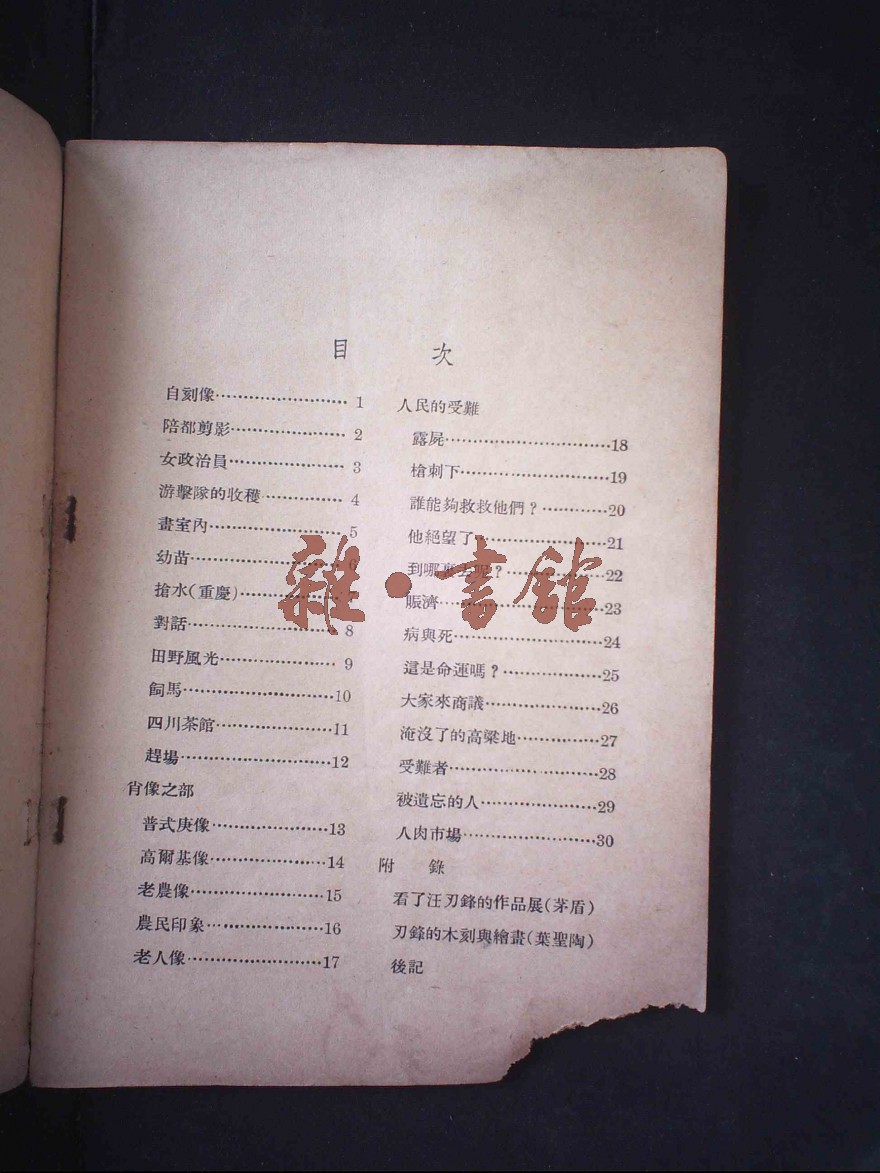 目 次
自刻像…………………… 1
陪都剪影………………… 2
女政治員………………… 3
游擊隊的收穫…………… 4
畫室內…………………… 5
幼苗……………………… 6
搶水(重慶)………………
對話……………………… 8
田野風光………………… 9
飼馬………………………10
四川茶館…………………11
趕場………………………12
肖像之部
普式庚像…………………13
高爾基像…………………14
老農像……………………15
農民印象…………………16
老人像……………………17
人民的受難
露屍………………………18
槍刺下……………………19
誰能夠救救他們?…………20
他絕望了…………………21
到哪裏去呢?………………22
賑濟………………………23
病與死……………………24
這是命運嗎?………………25
大家來商議………………26
淹沒了的高粱地…………27
受難者……………………28
被遺忘的人………………29
人肉市場…………………30
附 錄
看了汪刃鋒的作品展(茅盾)
刃鋒的木刻與繪畫(葉聖陶)
後記
雜·書館